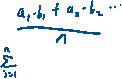 a₁·b₁ + a₂·b₂ ...
n
n
∑
i=1